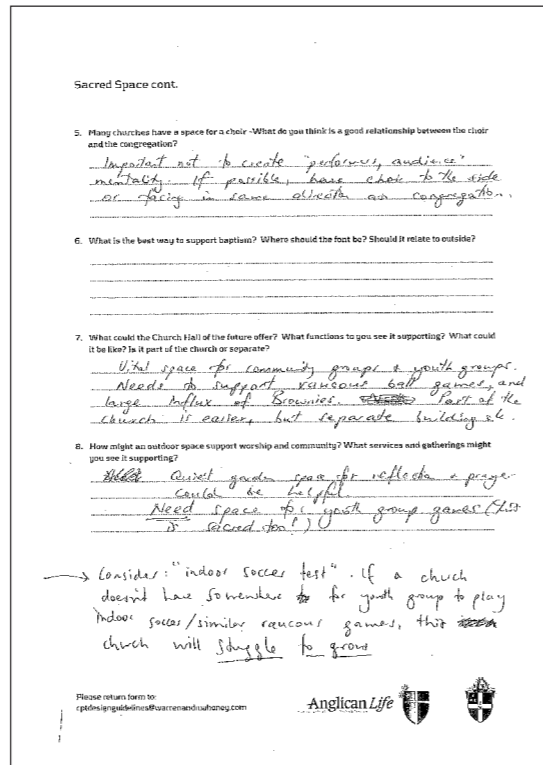 Sacred Space cont.
5. Many churches have a space for a choir -What do you think is a good relationship between the choir
and the congregation?
Important not to create "performers, audience"
mentality. If possible, have choir to the side
or facing in same direction as congregation.
6. What is the best way to support baptism? Where should the font be? Should it relate to outside?
7. What could the Church Hall of the future offer? What functions to you see it supporting? What could
it be like? Is it part of the church or separate?
Vital space for community groups & youth groups.
Needs to support raucous ball games, and
large influx of Brownies. Part of the
church is easier, but separate building ok.
8. How might an outdoor space support worship and community? What services and gatherings might
you see it supporting?
Quiet garden space for reflection & prayer
could be helpful
Need space for youth group games (this
is sacred too!)
→ Consider: "indoor soccer test". If a church
doesn't have somewhere for youth group to play
indoor soccer/similar raucous games, this
church will struggle to grow
Please return form to:
cptdesignguidelines@warrenandmahoney.com
Anglican Life